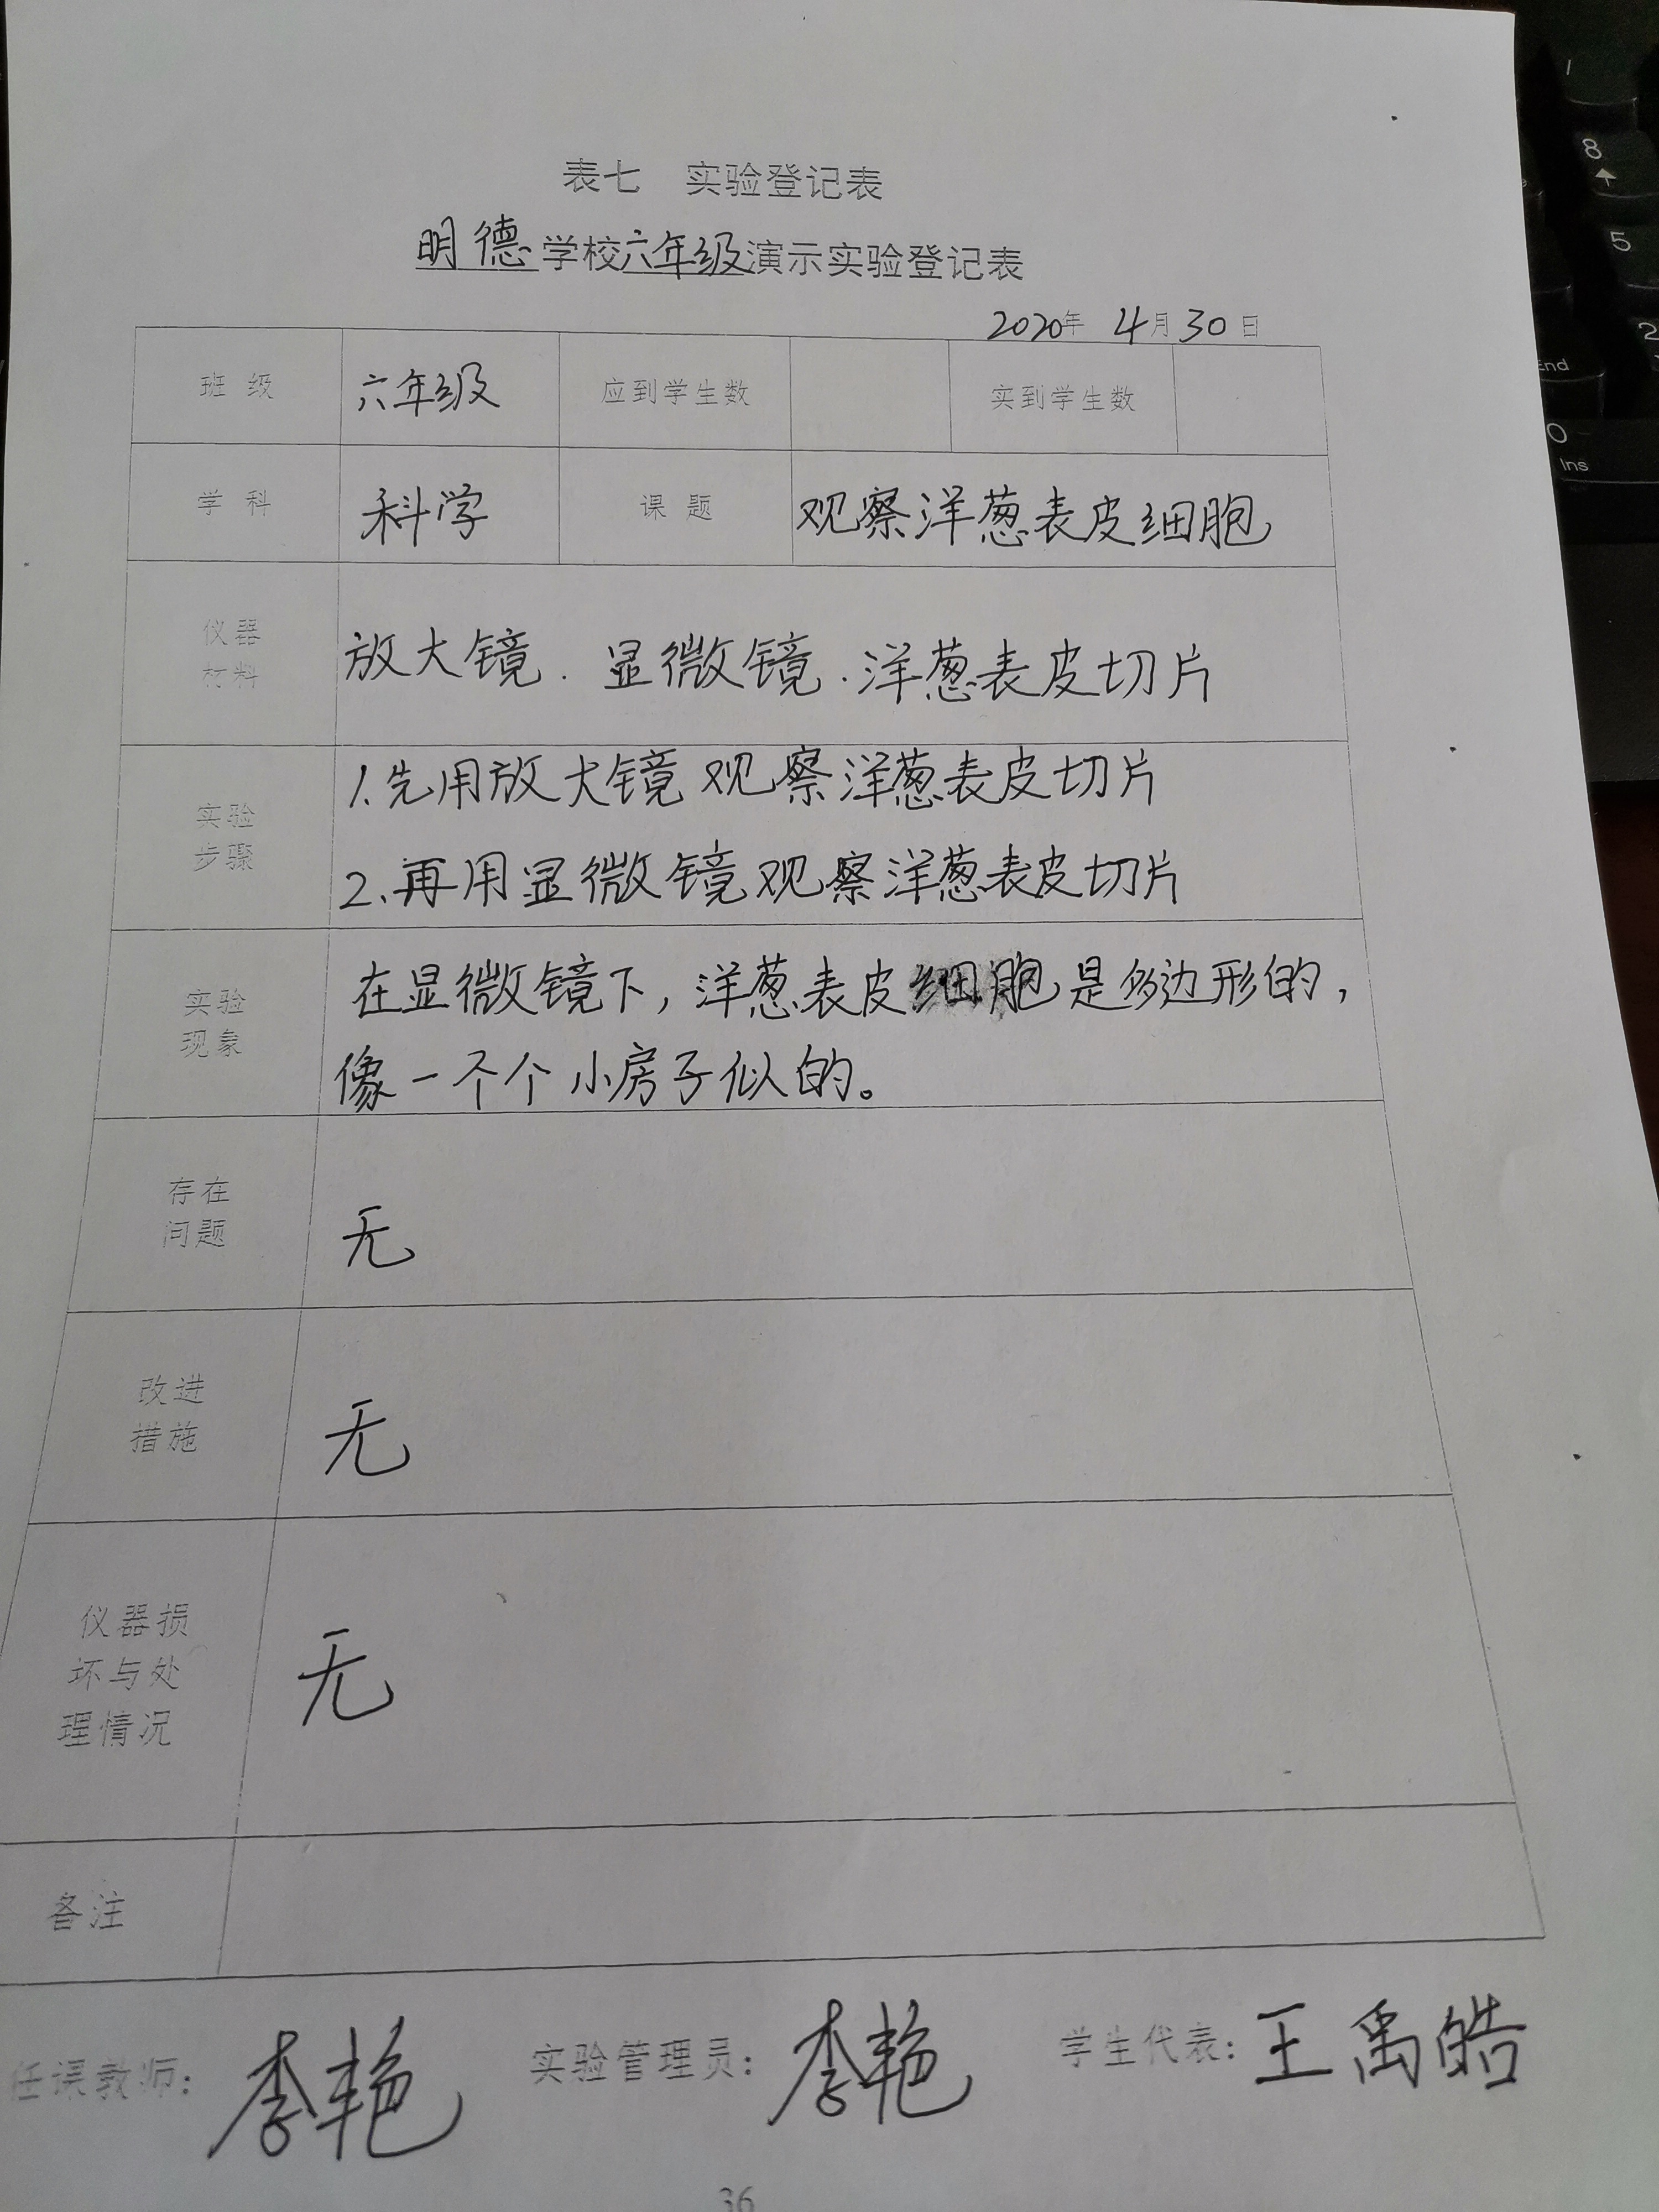 表七 实验登记表
明德学校六年级演示实验登记表
2020年 4月30日
班 级 六年级 应到学生数 实到学生数
学 科 科学 课 题 观察洋葱表皮细胞
仪器
材料
放大镜．显微镜．洋葱表皮切片
实验
步骤
1.先用放大镜观察洋葱表皮切片
2.再用显微镜观察洋葱表皮切片
实验
现象
在显微镜下，洋葱表皮细胞是多边形的，
像一个个小房子似的。
存在
问题
无
改进
措施
无
仪器损
坏与处
理情况
无
备注
任课教师：李艳 实验管理员：李艳 学生代表：王禹皓
36
8
5
2
End
0
Ins